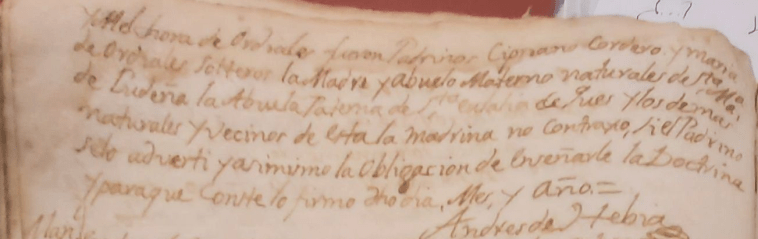 y Melchora de Ordiales fueron Padrinos Cipriano Cordero y maria
de Ordiales solteros la Madre y abuelo Materno naturales de Sta Ma
de Ludeña la Abuela Paterna de Sta eulalia de Ques y los demas
naturales y vecinos de esta la madrina no contraxo, si el Padrino
selo adverti y asimismo la obligacion de Enseñarle la Doctrina
y para que conste lo firmo dho dia, Mes, y año.=
Andres de Hebia